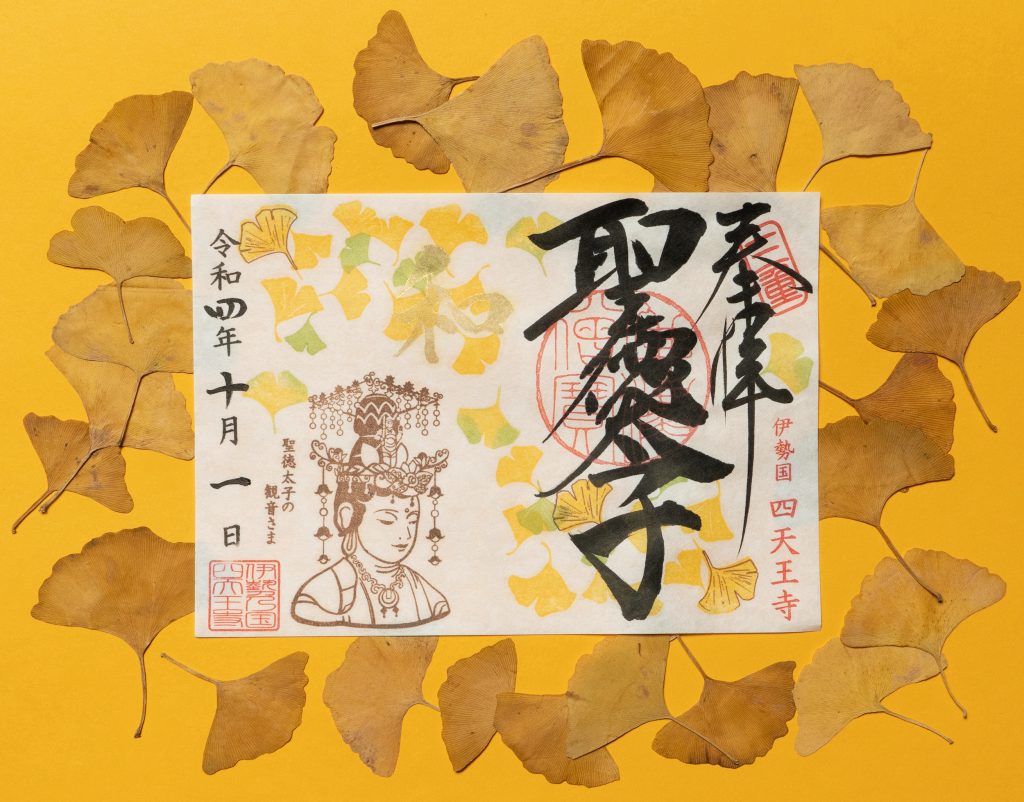 奉拝
伊勢国 四天王寺
聖徳太子
和
聖徳太子の
観音さま
令和四年十月一日